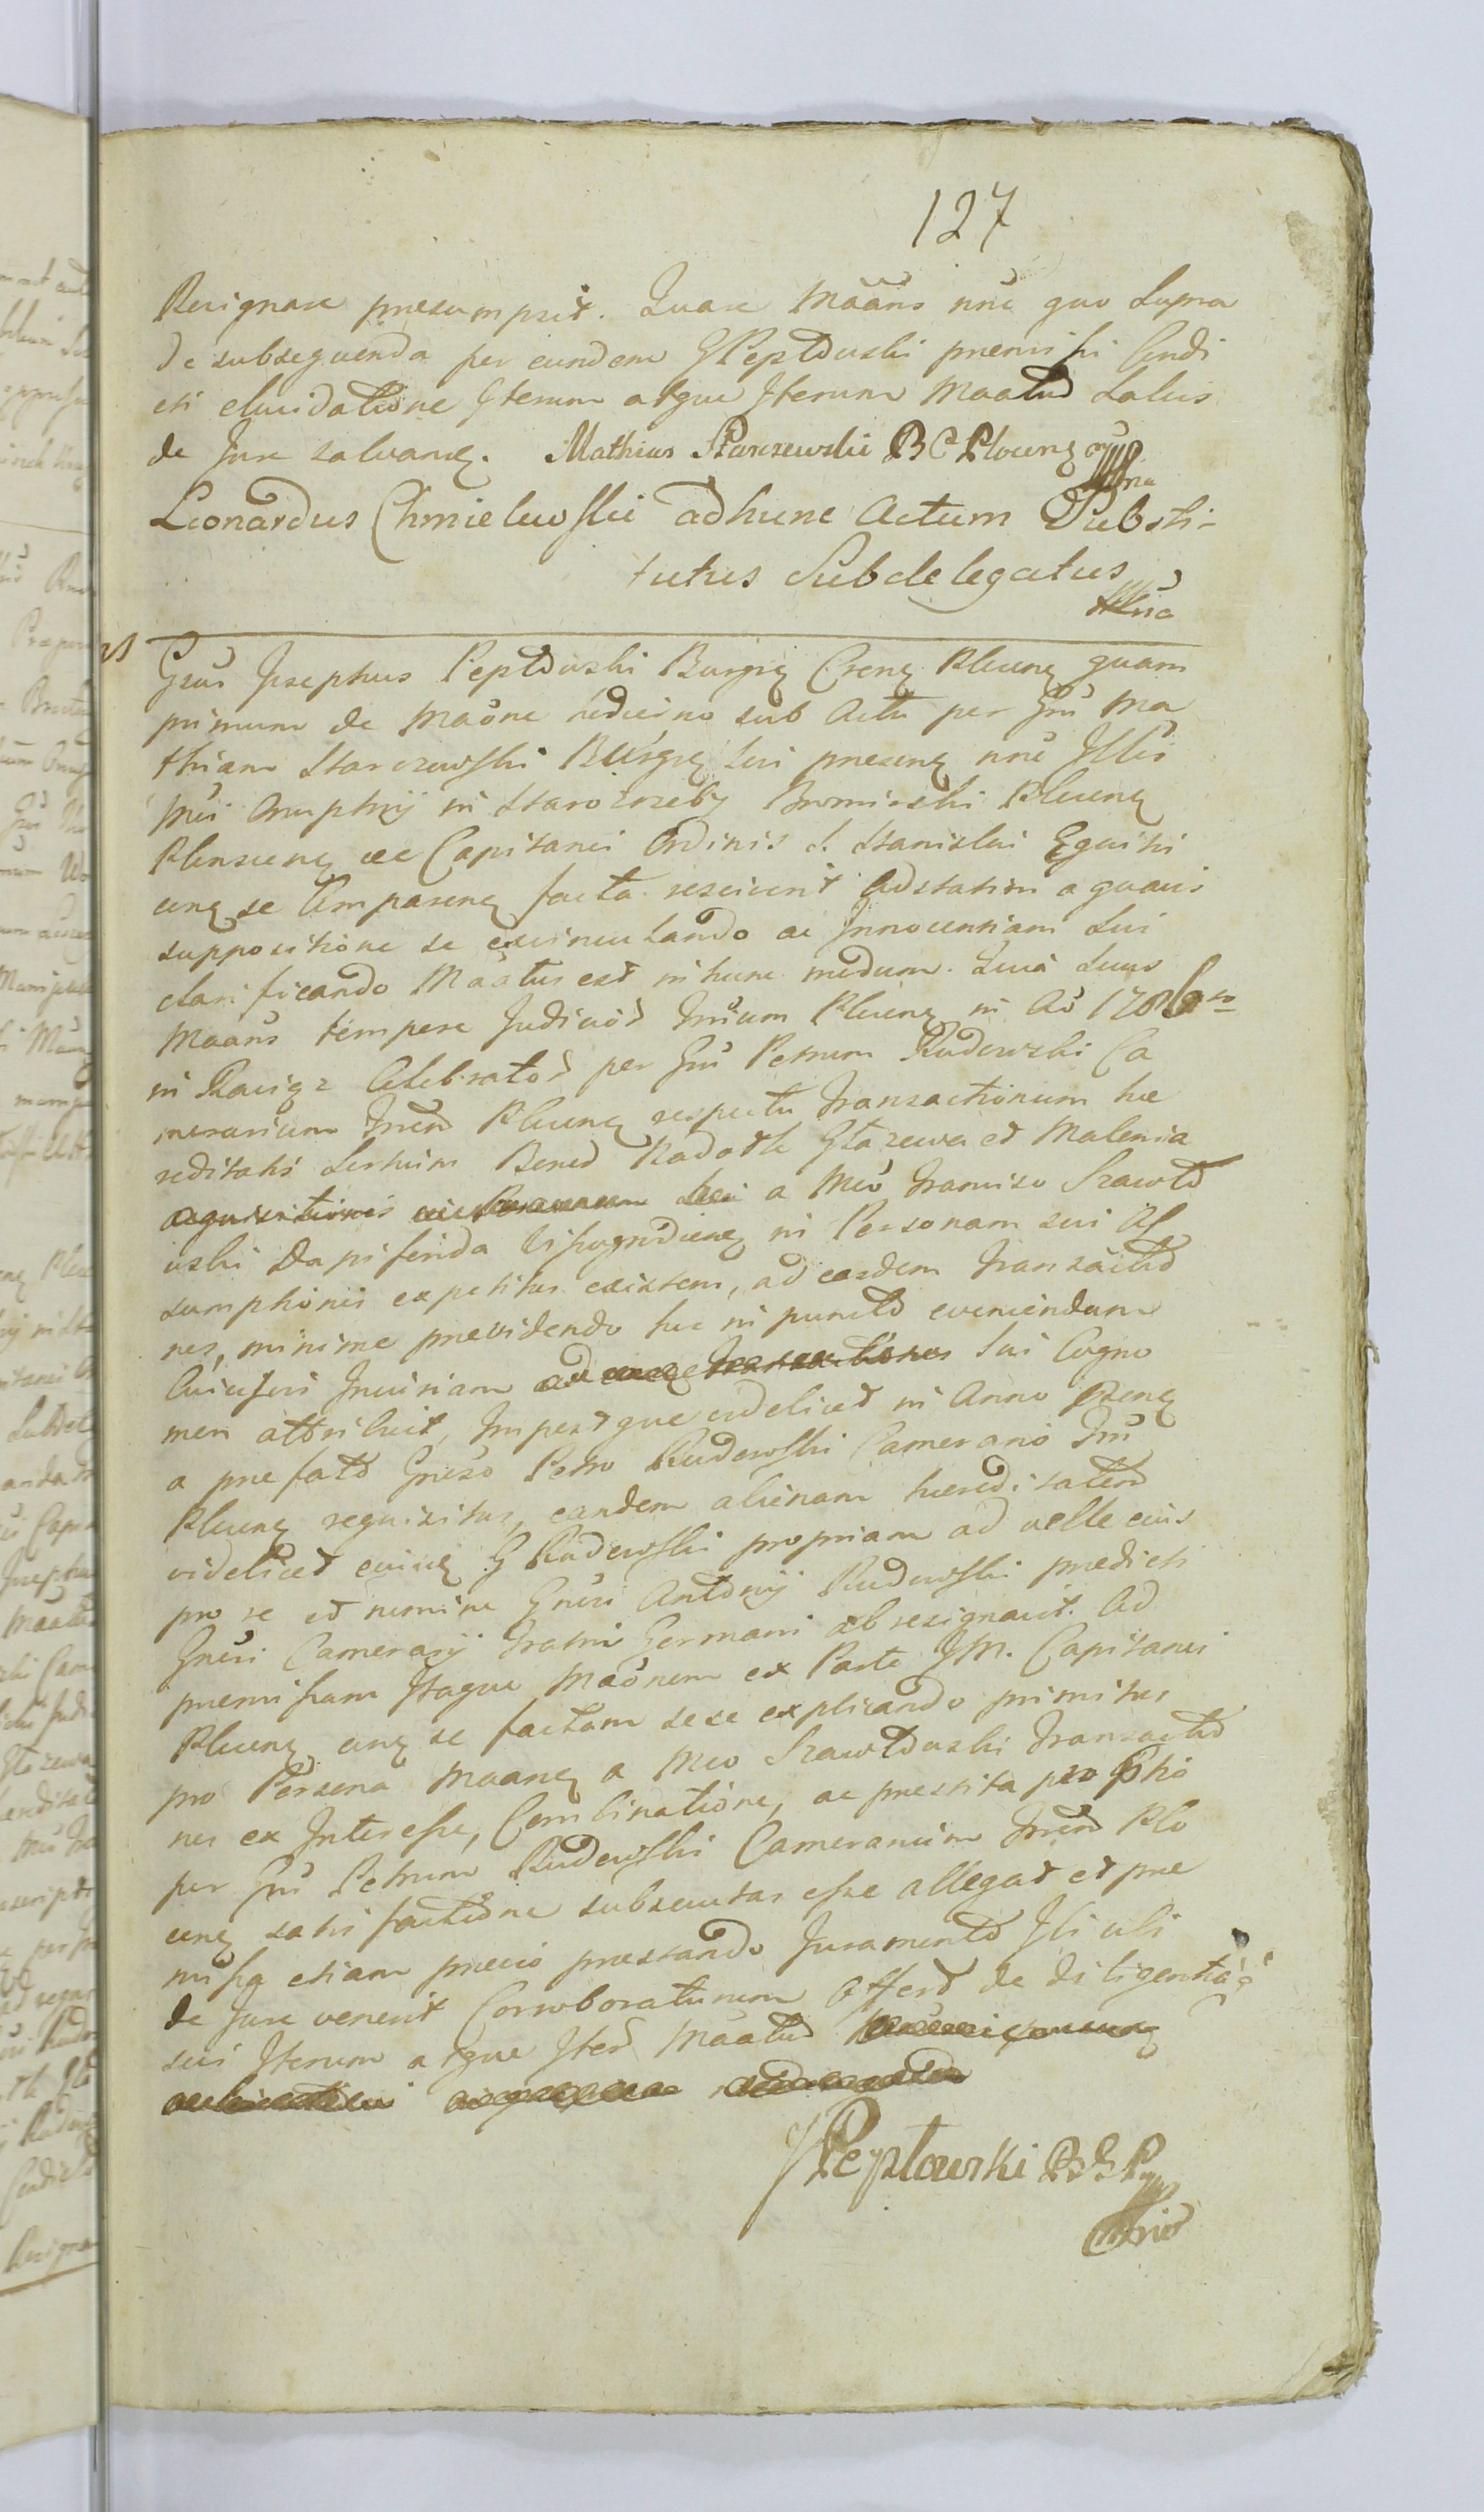 127
Resignare presumpsit. Quare Mããns nnẽ quo Supra
de subsequenda per eundem G Peptowski premissi Condi
cti elucidatione Iterum atque Iterum Maatur Salvis
de Jure salvanꝫ. Mathias Starczewski B C Plocenꝫ
mpria
Leonardus Chmielewski adhunc Actum Substi-
tutus Subdelegatus
mpria
Gsus Josephus Peptowski Burgrꝫ Crenꝫ Plucenꝫ quam
primum de Maõne hodierno sub Actu per Gsũ Ma
thiam Starczewski Burgrꝫ Sui presenꝫ nnẽ Illris
Mci Onuphrij in Starozreby Bromirski Plucenꝫ
Plonscenꝫ ac Capitanei Ordinis S. Stanislai Equitis
cunꝫ se Comparenꝫ facta rescivit Adstatim a quavis
suppositione se exvinculando ac Innocentiam Sui
clarificando Maatus est in hunc modum. Quia Suus
Maans tempore Judicioŕ Trrium Plucenꝫ in Aõ 1786to
in Raciąz Celebratoŕ per Gsũ Petrum Rudowski Ca
merarium Trrem Plucenꝫ respectu Transactionum hæ
reditatis Sortium Bonoŕ Radotki Głazewa et Malenia
a Mco Francisco Szawło
wski Dapiferida Wyszogrodienꝫ in Personam sui As
sumptionis expetitus existens, ad easdem Transactio
nes, minime previdendo hoc in puncto eveniendam
Cuiusvis Iniuriam Sui Cogno
men attribuit, Imperque videlicet in Anno Presenꝫ
a prefato Gneso Petro Rudowski Camerario Trri
Plucenꝫ requisitus, eandem alienam hæreditatem
videlicet cuiusꝫ G Rudowski propriam ad velle eius
pro se et nomine Gnesi Antonij Rudowski predicti
Gnesi Camerarij Fratris Germani abresignavit. Ad
premissam Itaque Maõnem ex Parte JM. Capitanei
Plucenꝫ cunꝫ se factam sese explicando primitus
pro Persona Maanꝫ a Mco Szawłowski Transactio
nes ex Interesse, Combinatione, ac prestita pro Phia
per Gsũ Petrum Rudowski Camerarium Trrem Plo
cenꝫ satisfactione subsecutas esse allegat et pre
missa etiam precio prestando Juramento Ibi ubi
de Jure venerit Corroboraturum offert de diligentia
sui Iterum atque Iteŕ Maatur
J Peptowski B G P
mpria